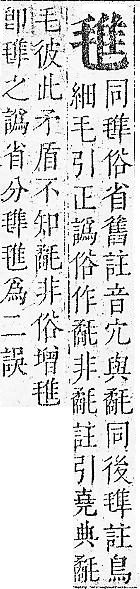 同俗省舊註音宂與氄同後註鳥
細毛引正譌俗作氄非氄註引堯典氄
毛彼此矛盾不知氄非俗增
卽之譌省分爲二誤